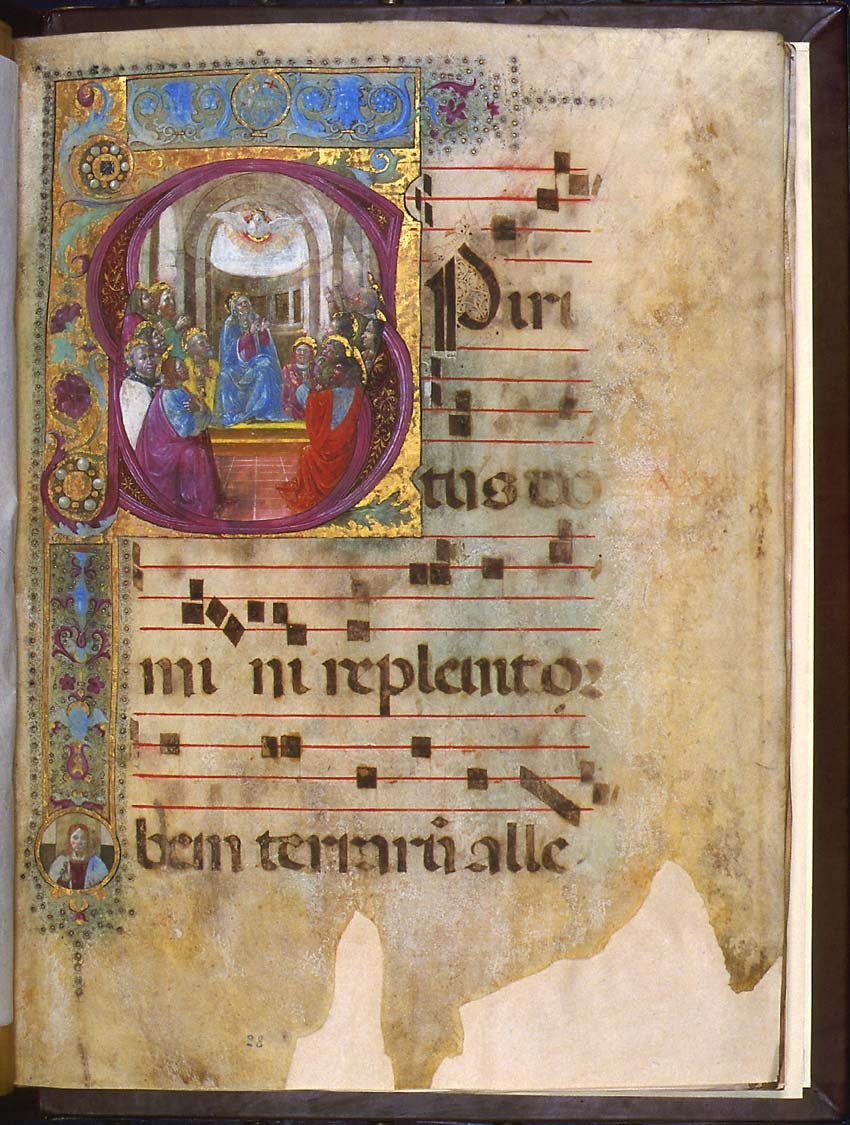 SPiri
tus do
mi ni repleuit or
bem terrarū alle
28